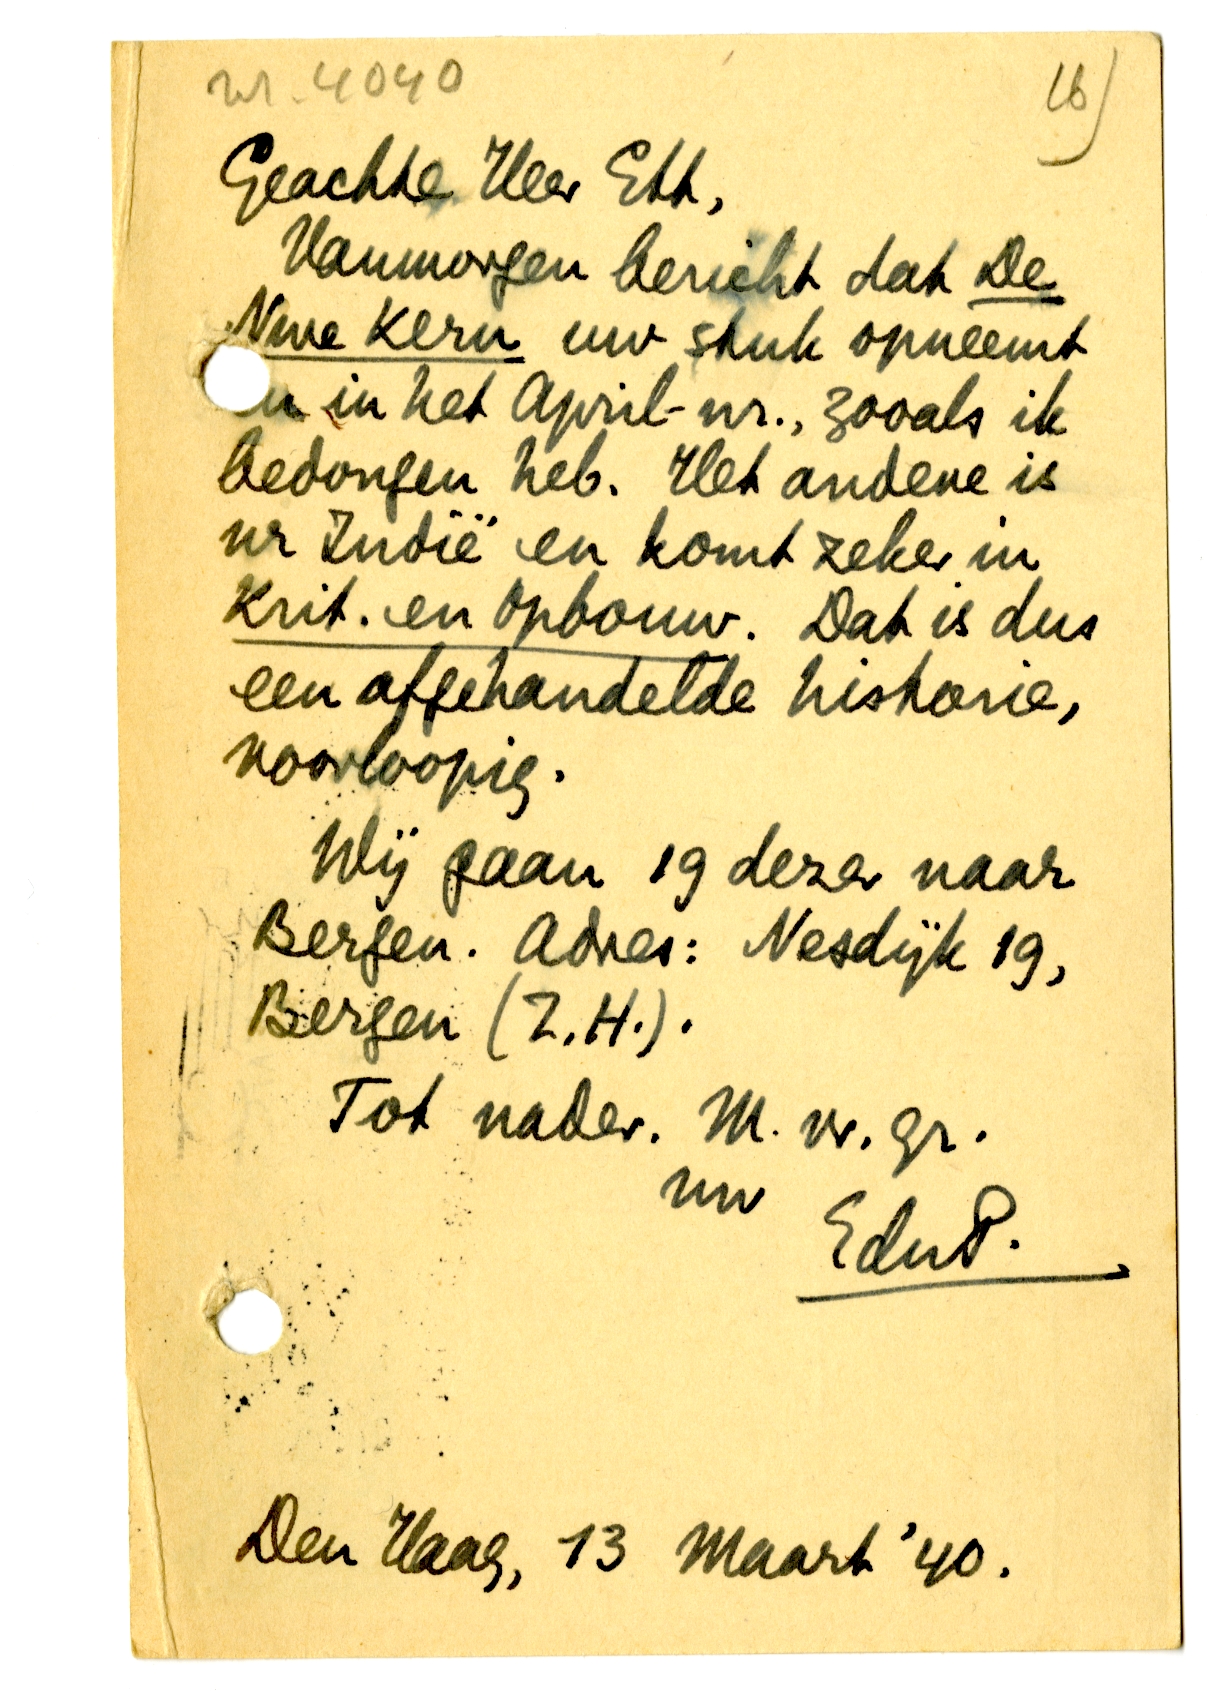 nr. 4040
16)
Geachte Heer Ett,
Vanmorgen bericht dat De
Nwe Kern uw stuk opneemt
en in het April-nr., zooals ik
bedongen heb. Het andere is
nr Indië en komt zeker in
Krit. en Opbouw. Dat is dus
een afgehandelde historie,
voorloopig.
Wij gaan 19 dezer naar
Bergen. Adres: Nesdijk 19,
Bergen (Z.H.).
Tot nader. M. vr. gr.
uw
EduP.
Den Haag, 13 Maart '40.